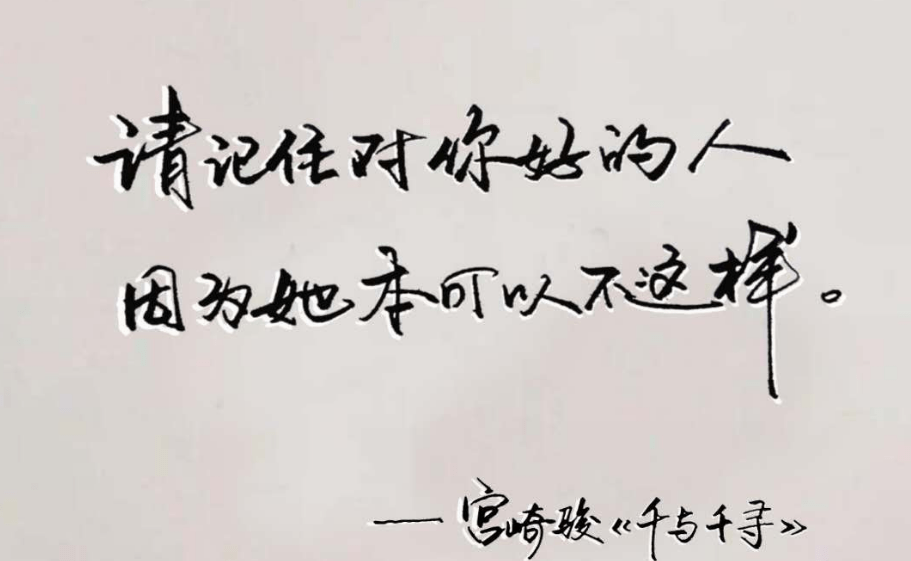 请记住对你好的人
因为她本可以不这样。
——宫崎骏《千与千寻》